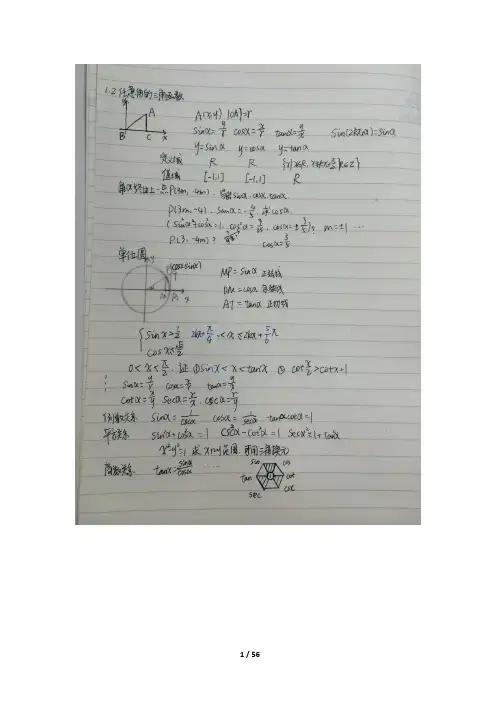 1.2 任意角的三角函数
A(x,y) |OA|=r
A
B C x
sinα=y/r cosα=x/r tanα=y/x sin(2kπ+α)=sinα
y=sinα y=cosα y=tanα
定义域 R R
值域 [-1,1] [-1,1] R
角α终边上一点P(3m,-4m)，求sinα.cosα.tanα.
P(3m,-4). sinα=-4/5. 求cosα.
(sin²α+cos²α=1. cos²α=9/25. cosα=±3/5), m=±1 …
P(3,-4m)? cosα=3/5
单位圆
(cosα,sinα)
MP=sinα 正弦线
OM=cosα 余弦线
AT=tanα 正切线
sinx>1/2
cosx≤√2/2
2kπ+π/4 <x≤2kπ+5/6π
0<x<π/2. 证 ①sinx<x<tanx ② cot x/2>cotx+1
sinα=y/r cosα=x/r tanα=y/x
cotα=x/y secα=r/x. cscα=r/y
倒数关系 sinα=1/cscα cosα=1/secα tanαcotα=1
平方关系 sin²α+cos²α=1 csc²α-cot²α=1 sec²α=1+tan²α
x²+y²=1 求 范围. 可用三角换元
商数关系 tanα=sinα/cosα …
sin cos
tan 1 cot
sec csc
1 / 56